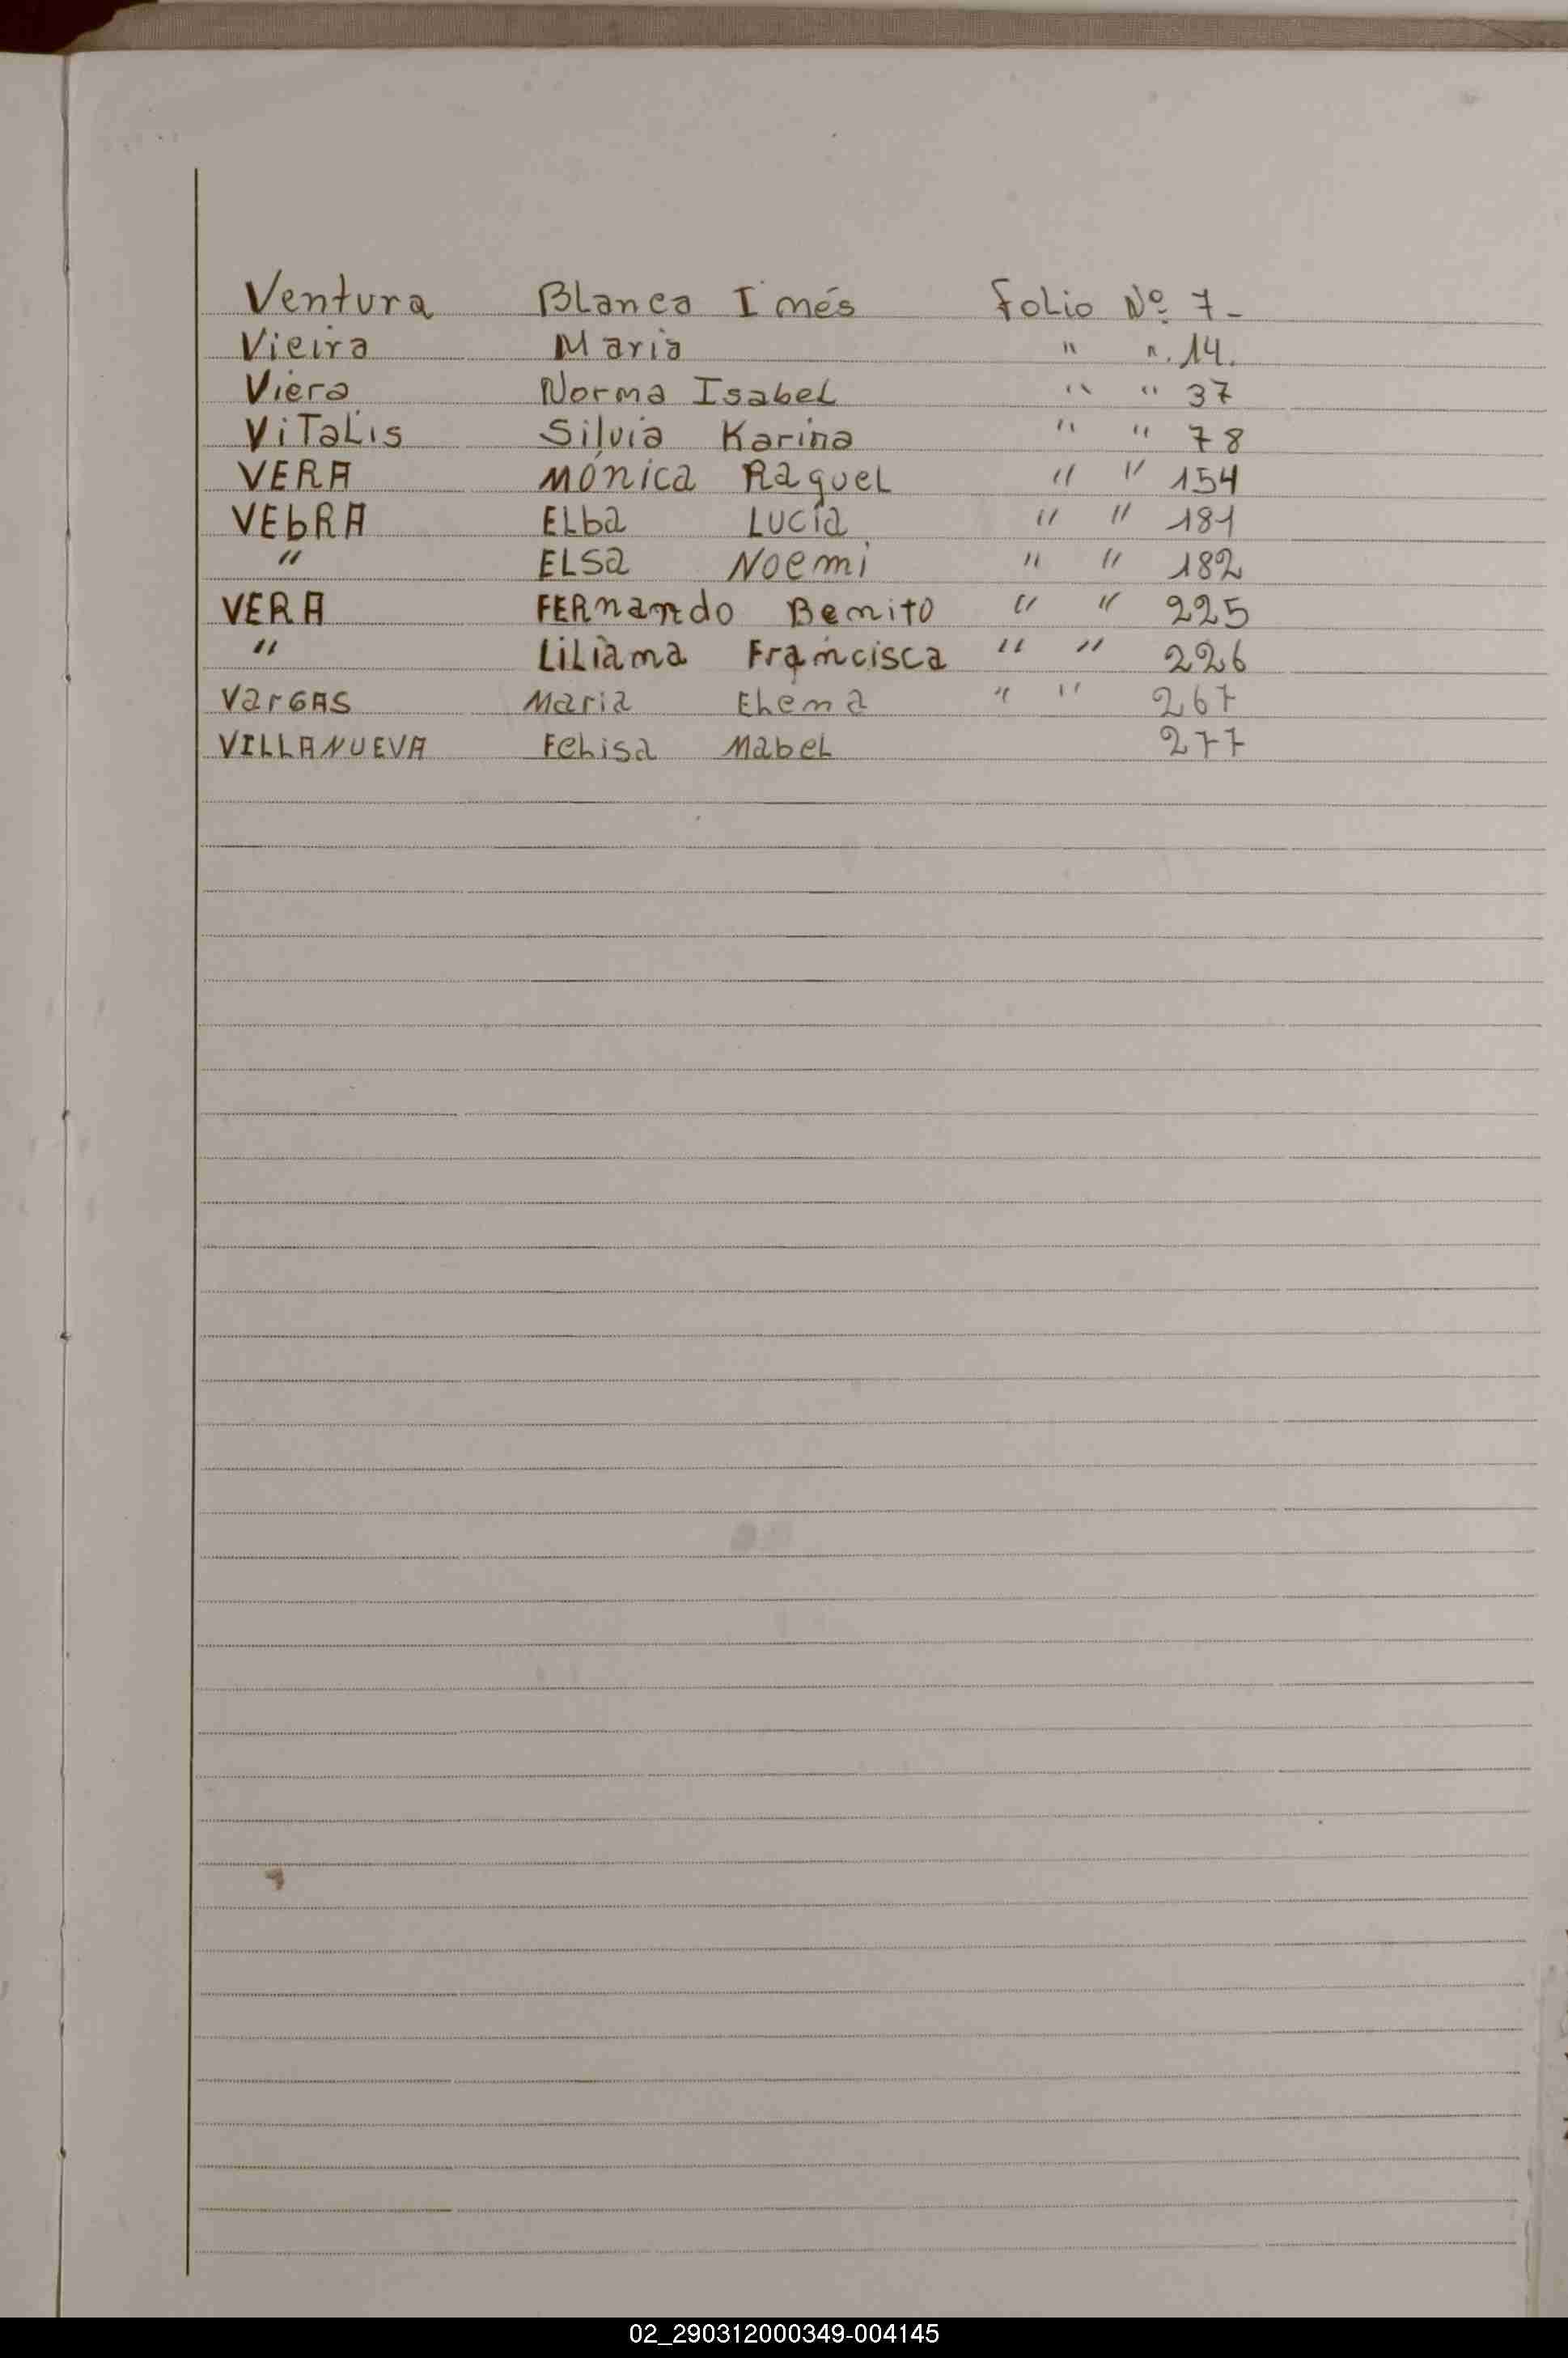 Ventura Blanca Inés Folio Nº 7-
Vieira Maria " ". 14.
Viera Norma Isabel " " 37
ViTaLis Silvia Karina " " 78
VERA MÓnica RaqueL " " 154
VEbRA ELba Lucía " " 181
" ELSa Noemi " " 182
VERA FERnando Benito " " 225
" LiLiana Francisca " " 226
VarGAS Maria ELena " " 267
VILLANUEVA FeLisa MabeL 277
02_290312000349-004145